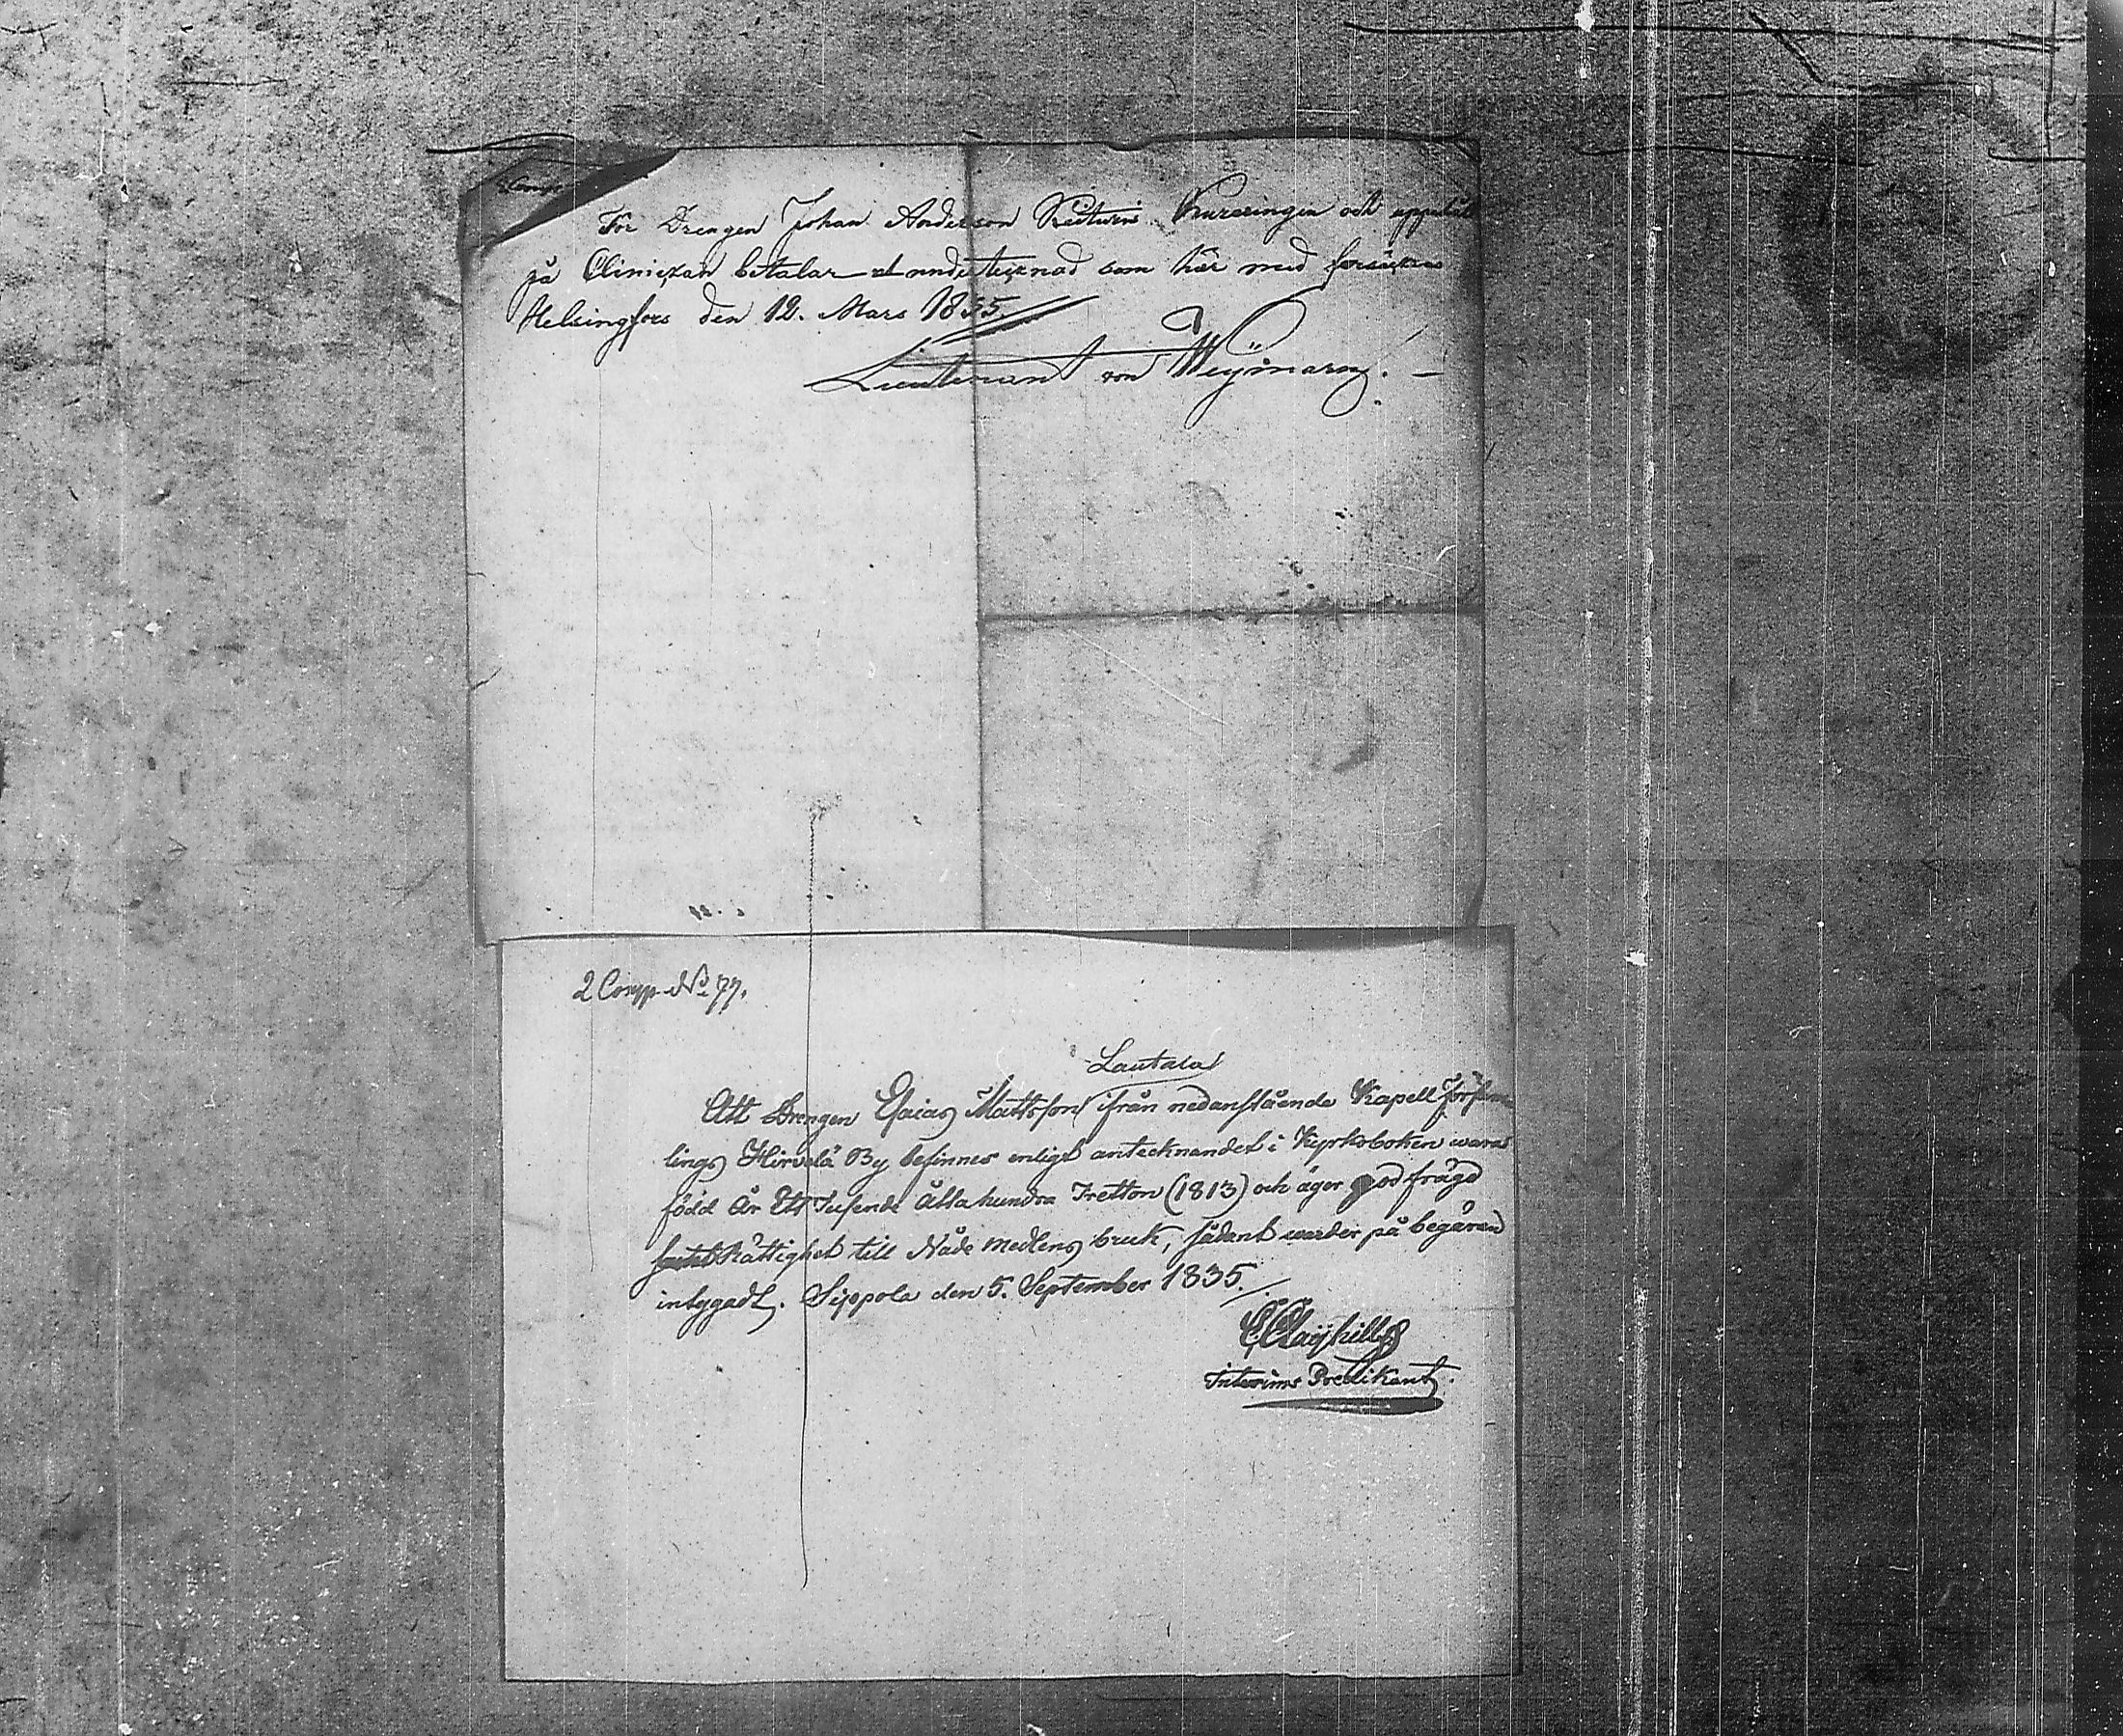 Comp
För Drengen Johan Anderson Kureringen och
på Clinickan betalar undertecknad som här med försäkras
Helsingfors den 12. Mars 1835
Lieutenant von Weymarn.
2 Comp. No 77.
Lautala
Att Drengen Esaias Mattsson ifrån nedanstående Kapell Försam
lings Hirvelä By befinnes enligt antecknandet i Kyrkoboken wara
född År Ett Tusende Åtta hundra Tretton (1813) och äger god frägd
Rättighet till Nåde medlens bruk, sådant warder på begäran
intygadt. Sippola den 5. September 1835.
C. Clayhills
Interims Predikant.